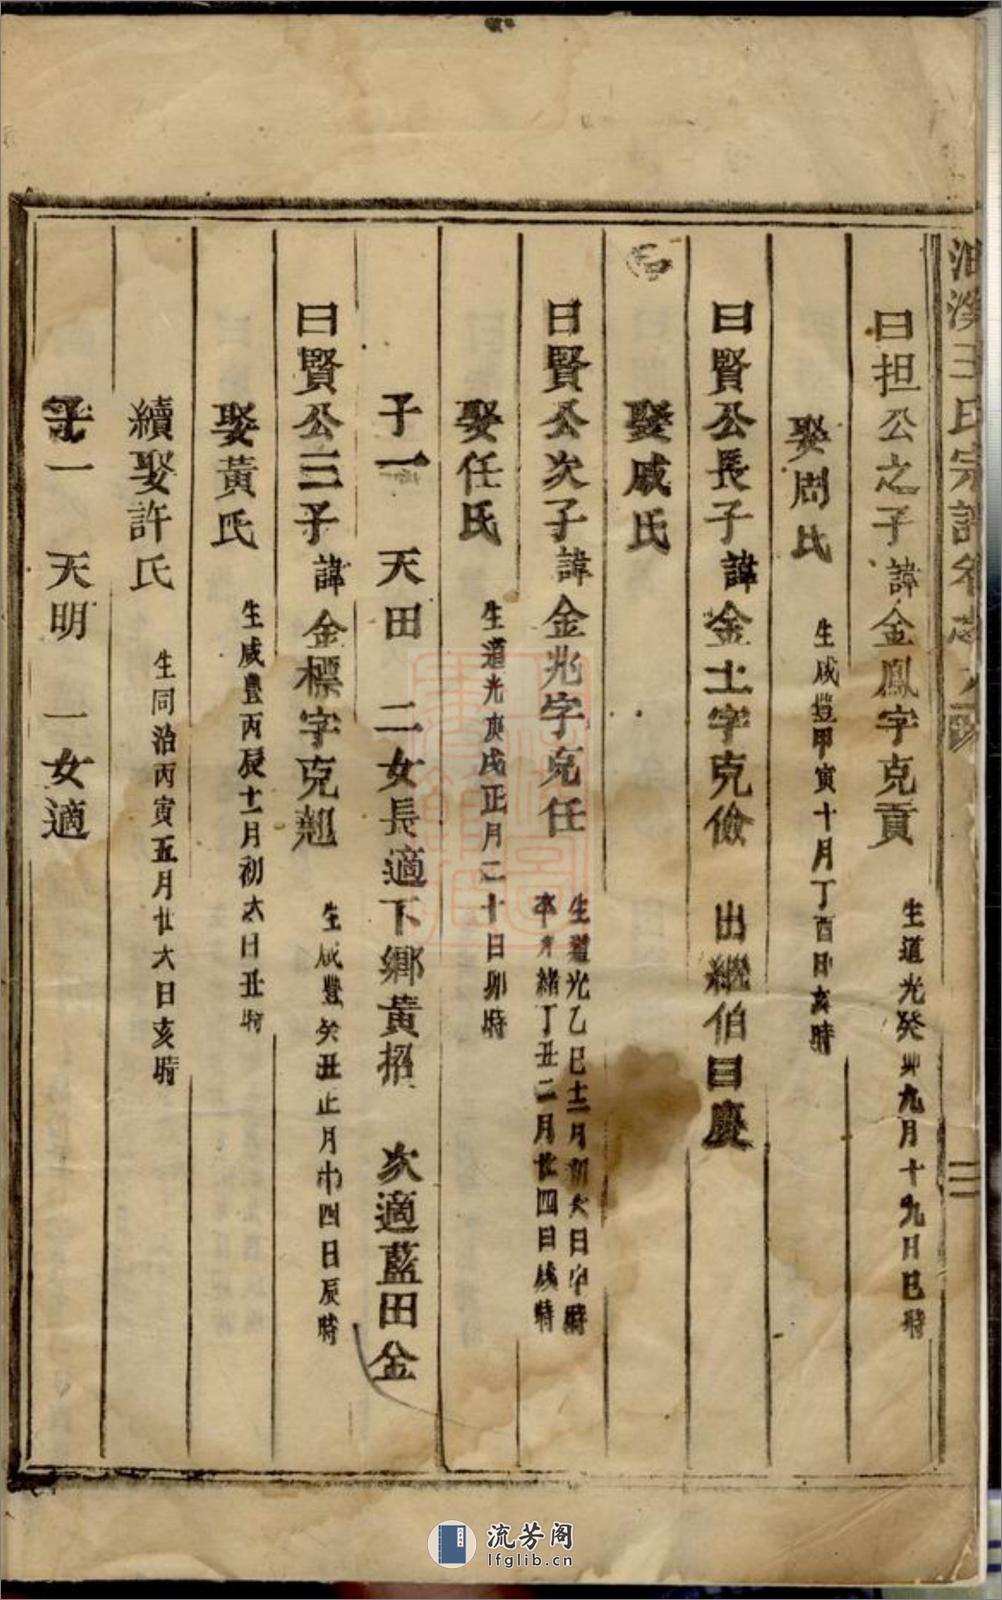 王氏宗譜
三
曰担公之子諱金鳳字克貢 生道光癸卯九月十九日巳時
娶周氏 生咸豐甲寅十月丁酉日亥時
曰賢公長子諱金土字克儉 出繼伯曰慶
娶戚氏
曰賢公次子諱金兆字克任 生道光乙巳十二月初六日申時
卒光緒丁丑二月廿四日戌時
娶任氏 生道光庚戌正月二十日卯時
子一 天田 二女長適下鄉黃招 次適藍田金
曰賢公三子諱金標字克翹 生咸豐癸丑正月廿四日辰時
娶黃氏 生咸豐丙辰十一月初六日丑時
續娶許氏 生同治丙寅五月廿六日亥時
子一 天明 一女適
流芳阁
lfglib.cn